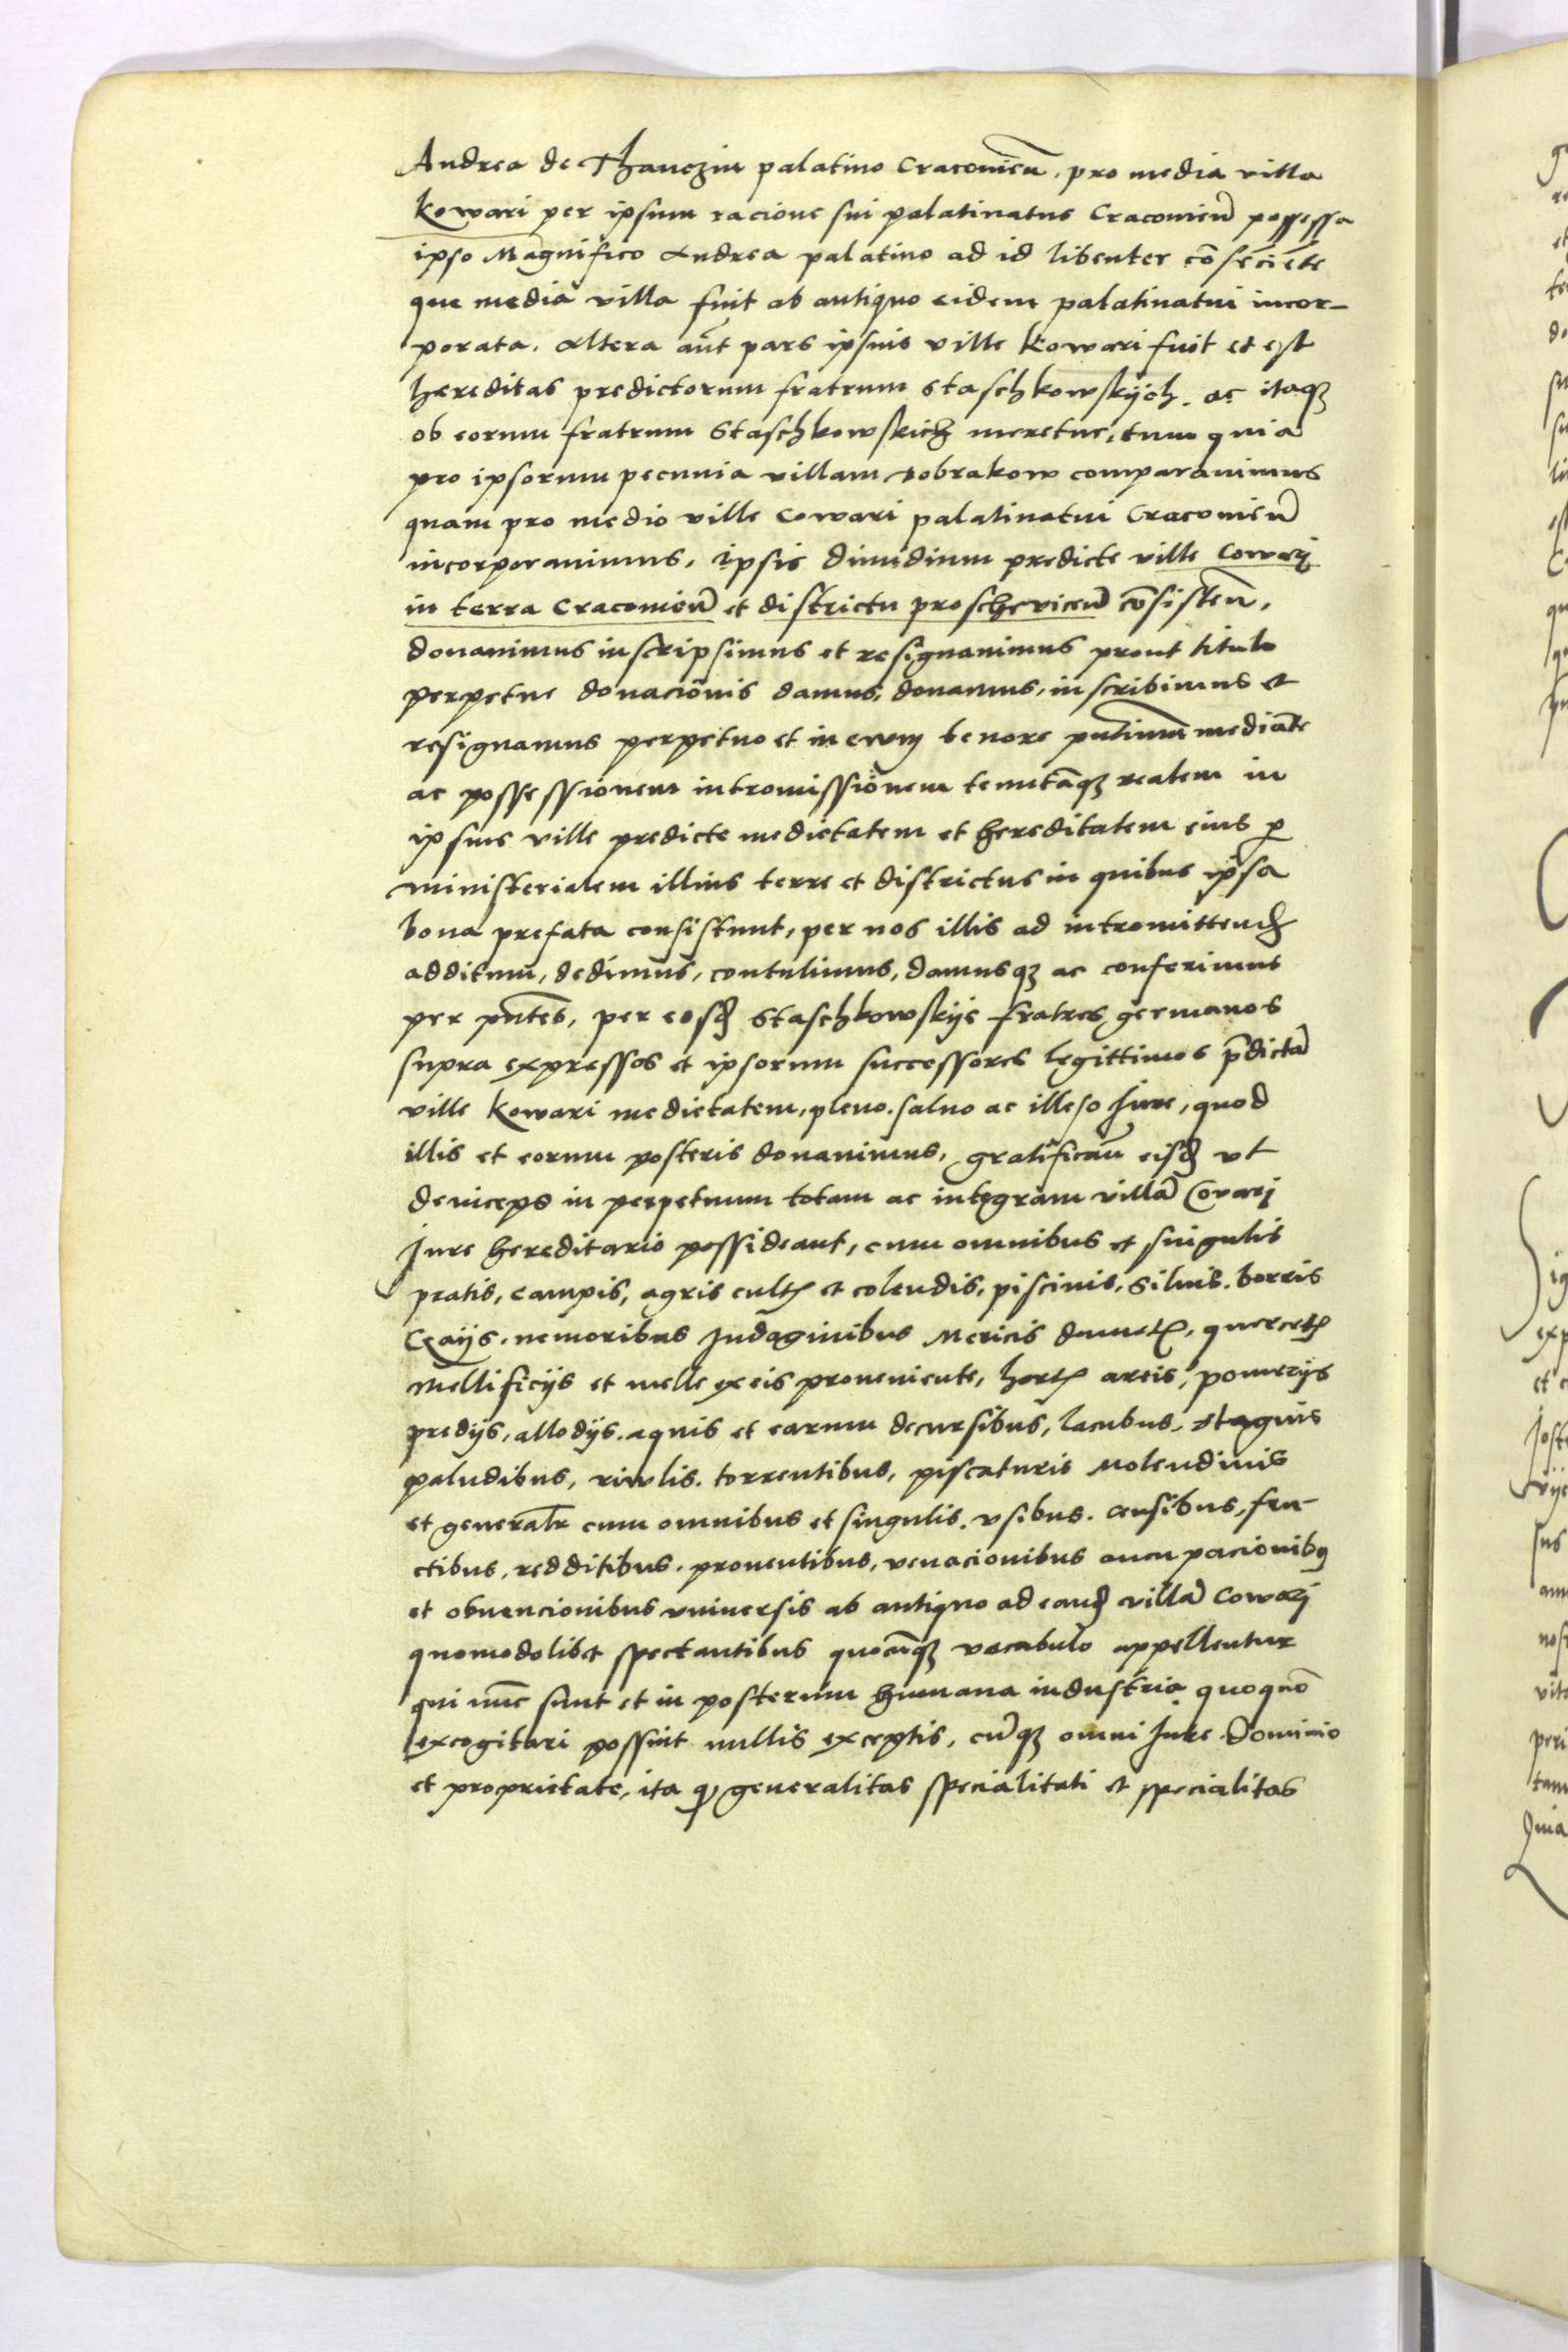 Andrea de Thanczin palatino Cracovien̄. pro media villa
Kowari per ipsum racione sui palatinatus Cracovien̄ possessa
ipso Magnifico Andrea palatino ad id libenter cōsēciēte
que media villa fuit ab antiquo eidem palatinatui incor-
porata. Altera aūt pars ipsius ville Kowari fuit et est
hereditas predictorum fratrum Staschkowskÿch. ac itaqꝫ
ob eorum fratrum Staschkowskich meretur, tum quia
pro ipsorum pecunia villam Dobrakow comparavimus
quam pro medio ville Cowari palatinatui Cracovien̄
incorporavimus, ipsis dimidium predicte ville Cowarj
in terra Cracovien̄ et districtu proschovicen̄ cōsisten̄,
donavimus inscripsimus et resignavimus prout titulo
perpetue donacionis damus, donamus, inscribimus et
resignamus perpetuo et in evum tenore pn̄tium mediāte
ac possessionem intromissionem tenutāqꝫ realem in
ipsius ville predicte medietatem et hereditatem eius ꝑ
ministerialem illius terre et districtus in quibus ipsa
bona prefata consistunt, per nos illis ad intromittend̄
additum, dedimus, contulimus, damusqꝫ ac conferimus
per pn̄tes, per eosd̄ Staschkowskÿe fratres germanos
supra expressos et ipsorum successores legittimos p̄dictā
ville Kowari medietatem, pleno. salvo ac illeso Jure, quod
illis et eorum posteris donavimus, gratificam̄ eisd̄ vt
deinceps in perpetuum totam ac integram villā Covarj
Jure hereditario possideant, cum omnibus et singulis
pratis, campis, agris cultꝭ et colendis, piscinis, Silvis. borris
Gaÿs. nemoribus Indaginibus Mericis dumetꝭ, quercetꝭ
Mellificÿs et melle ex eis proveniente, hortꝭ areis, pomerÿs
predÿs, allodÿs. aquis et earum decursibus, lacubus, Stagnis
paludibus, rivulis. torrentibus, piscaturis Molendinis
et generalr̄ cum omnibus et singulis. vsibus. censibus, fru-
ctibus, redditibus. proventibus, venacionibus aucupacionibꝰ
et obvencionibus vniversis ab antiquo ad eand̄ villā Cowarj
quomodolibet spectantibus quocūqꝫ vocabulo appellentur
qui nūc sunt et in posterum humana industria quoquo͞
excogitari possint nullis exceptis, cūqꝫ omni Jure Dominio
et proprietate, ita ꝙ generalitas specialitati et specialitas